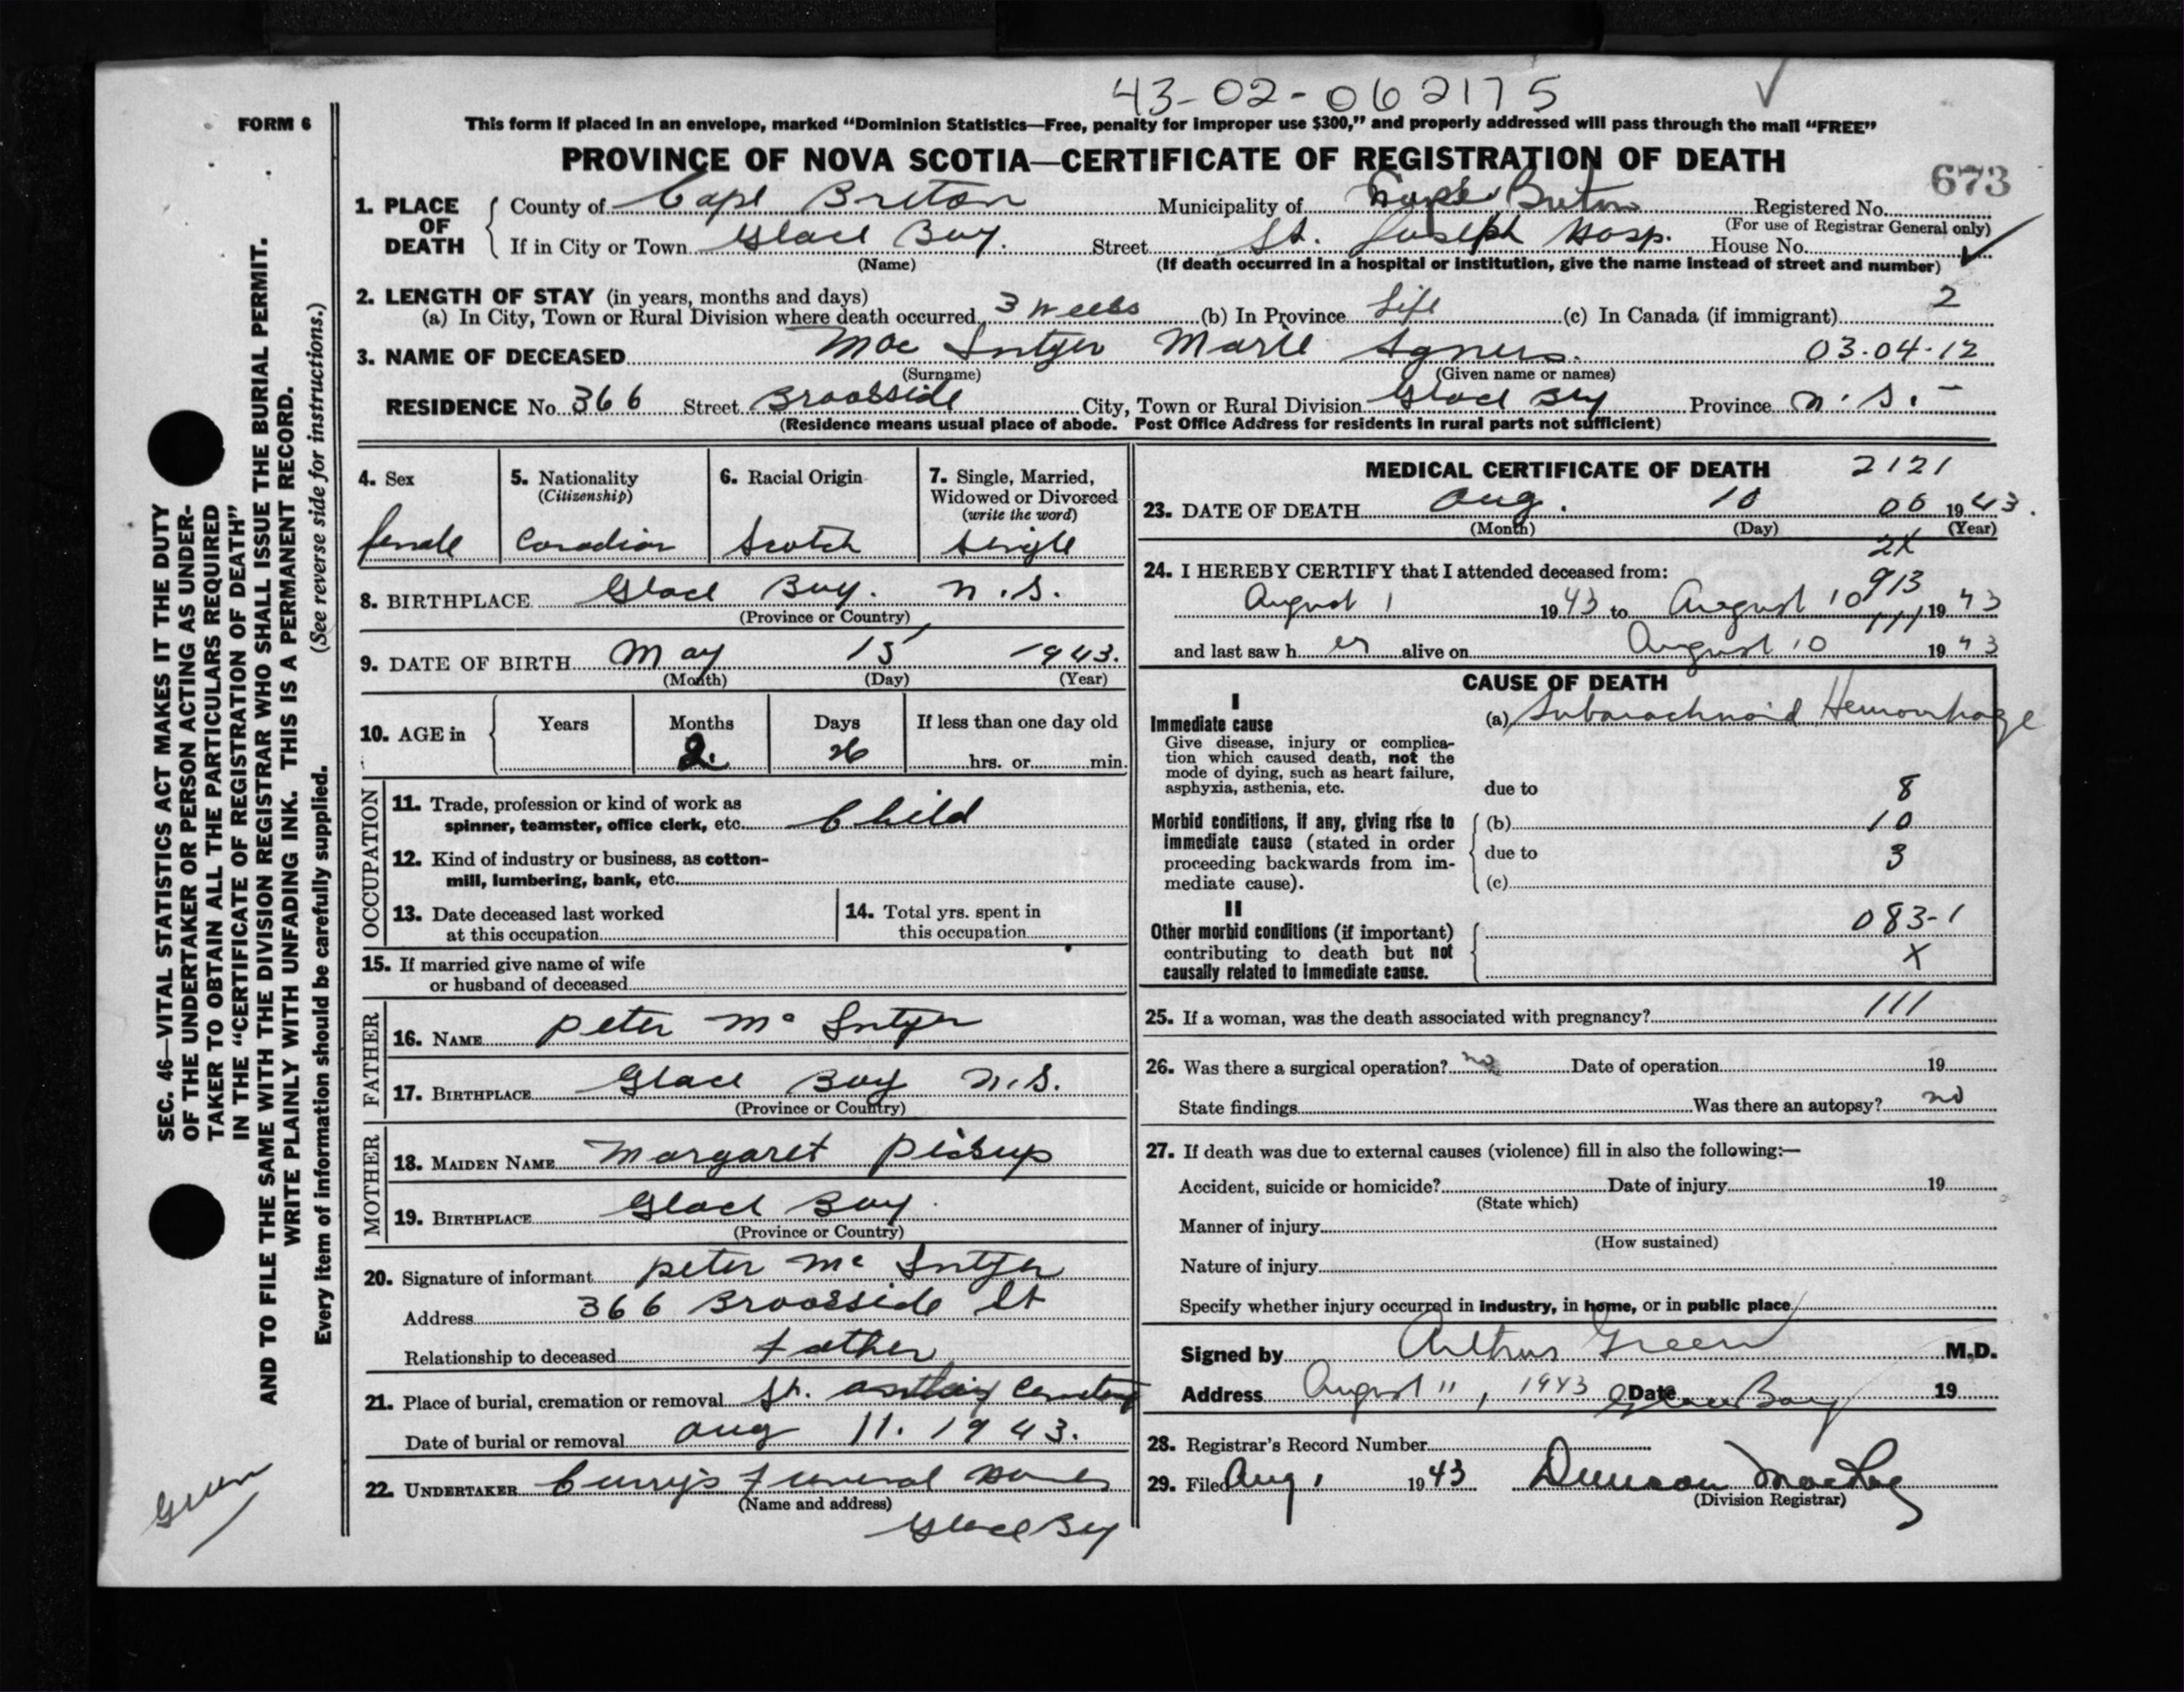 43-02-062175
FORM 6
This form if placed in an envelope, marked “Dominion Statistics—Free, penalty for improper use $300,” and properly addressed will pass through the mail “FREE”
PROVINCE OF NOVA SCOTIA—CERTIFICATE OF REGISTRATION OF DEATH
673
1. PLACE OF DEATH { County of Cape Breton Municipality of Cape Breton Registered No.
(For use of Registrar General only)
If in City or Town Glace Bay. Street St. Joseph Hosp. House No.
(Name) (If death occurred in a hospital or institution, give the name instead of street and number)
2. LENGTH OF STAY (in years, months and days)
(a) In City, Town or Rural Division where death occurred 3 weeks (b) In Province Life (c) In Canada (if immigrant) 2
3. NAME OF DECEASED Mac Intyer Marie Agnes. 03-04-12
(Surname) (Given name or names)
RESIDENCE No. 366 Street Brookside City, Town or Rural Division Glace Bay Province N.S. -
(Residence means usual place of abode. Post Office Address for residents in rural parts not sufficient)
4. Sex
female
5. Nationality
(Citizenship)
Canadian
6. Racial Origin
Scotch
7. Single, Married,
Widowed or Divorced
(write the word)
single
8. BIRTHPLACE Glace Bay. N.S.
(Province or Country)
9. DATE OF BIRTH May 15 1943.
(Month) (Day) (Year)
10. AGE in { Years Months Days If less than one day old
2. 26 hrs. or min.
OCCUPATION
11. Trade, profession or kind of work as
spinner, teamster, office clerk, etc. Child
12. Kind of industry or business, as cotton-
mill, lumbering, bank, etc.
13. Date deceased last worked
at this occupation
14. Total yrs. spent in
this occupation
15. If married give name of wife
or husband of deceased
FATHER
16. NAME Peter Mc Intyer
17. BIRTHPLACE Glace Bay N.S.
(Province or Country)
MOTHER
18. MAIDEN NAME Margaret Pickup
19. BIRTHPLACE Glace Bay.
(Province or Country)
20. Signature of informant Peter Mc Intyer
Address 366 Brookside St
Relationship to deceased Father
21. Place of burial, cremation or removal St. Cemetery
Date of burial or removal Aug 11. 1943.
22. UNDERTAKER Curry's Funeral Home
(Name and address)
Glace Bay
MEDICAL CERTIFICATE OF DEATH 2121
23. DATE OF DEATH Aug. 10 06 1943.
(Month) (Day) (Year)
24. I HEREBY CERTIFY that I attended deceased from:
2X
913
August 1 1943 to August 10 1943
111
and last saw her alive on August 10 1943
CAUSE OF DEATH
I
Immediate cause
Give disease, injury or complica-
tion which caused death, not the
mode of dying, such as heart failure,
asphyxia, asthenia, etc.
(a) Subarachnoid Hemorrhage
due to 8
Morbid conditions, if any, giving rise to
immediate cause (stated in order
proceeding backwards from im-
mediate cause).
(b) 10
due to 3
(c)
II
Other morbid conditions (if important)
contributing to death but not
causally related to immediate cause.
083-1
X
25. If a woman, was the death associated with pregnancy? 111
26. Was there a surgical operation? no Date of operation 19
State findings Was there an autopsy? no
27. If death was due to external causes (violence) fill in also the following:—
Accident, suicide or homicide? Date of injury 19
(State which)
Manner of injury
(How sustained)
Nature of injury
Specify whether injury occurred in industry, in home, or in public place
Signed by Arthur Green M.D.
Address August 11, 1943 Date Glace Bay 19
28. Registrar's Record Number
29. Filed Aug, 1943 Duncan
(Division Registrar)
SEC. 46—VITAL STATISTICS ACT MAKES IT THE DUTY
OF THE UNDERTAKER OR PERSON ACTING AS UNDER-
TAKER TO OBTAIN ALL THE PARTICULARS REQUIRED
IN THE “CERTIFICATE OF REGISTRATION OF DEATH”
AND TO FILE THE SAME WITH THE DIVISION REGISTRAR WHO SHALL ISSUE THE BURIAL PERMIT.
WRITE PLAINLY WITH UNFADING INK. THIS IS A PERMANENT RECORD.
Every item of information should be carefully supplied. (See reverse side for instructions.)
Green